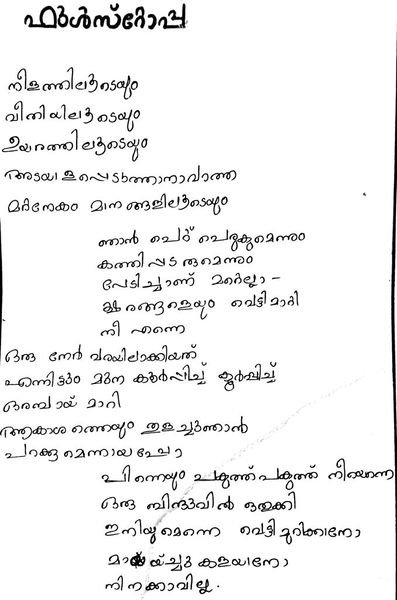 ഫുൾസ്റ്റോപ്പ
നീളത്തിലൂടെയും
വീതിയിലൂടെയും
ഉയരത്തിലൂടെയും
അടയാളപ്പെടുത്താനാവാത്ത
മറ്റനേകം മാനങ്ങളിലൂടെയും
ഞാൻ പെറ്റ് പെരുകുമെന്നും
കത്തിപ്പടരുമെന്നും
പേടിച്ചാണ് മറ്റെല്ലാ -
ക്ഷരങ്ങളെയും വെട്ടിമാറ്റി
നീ എന്നെ
ഒരു നേർ വരയിലാക്കിയത്
എന്നിട്ടും മുന കൂർപ്പിച്ച് കൂർപ്പിച്ച്
ഒരമ്പായ് മാറി
ആകാശത്തെയും തുളച്ചുഞാൻ
പറക്കുമെന്നായപ്പോ
പിന്നെയും പകുത്ത് പകുത്ത് നീയെന്നെ
ഒരു ബിന്ദുവിൽ ഒതുക്കി
ഇനിയുമെന്നെ വെട്ടിമുറിക്കാനോ
മായ്ച്ചു കളയാനോ
നിനക്കാവില്ല.